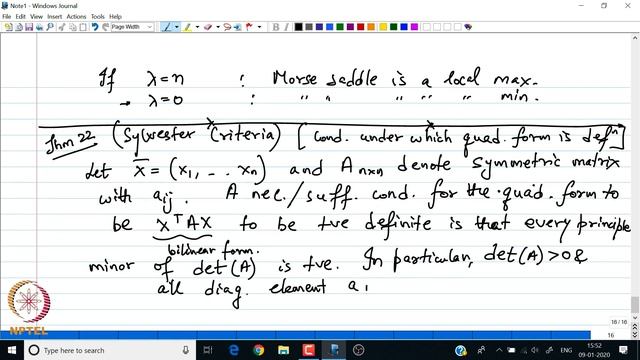 Note1 - Windows Journal
File Edit View Insert Actions Tools Help
Page Width
If λ=n : Morse saddle is a local max.
→ λ=0 : " " " " " min.
Thm 22 (Sylvester Criteria) [Cond. under which quad. form is defn]
Let x̄ = (x1, .. xn) and An×n denote symmetric matrix
with aij. A nec./suff. cond. for the quad. form to
be XᵀAX to be +ve definite is that every principle
bilinear form.
minor of det(A) is +ve. In particular, det(A)>0 &
all diag. element a
16/16
NPTEL
Type here to search
ENG
15:52
09-01-2020